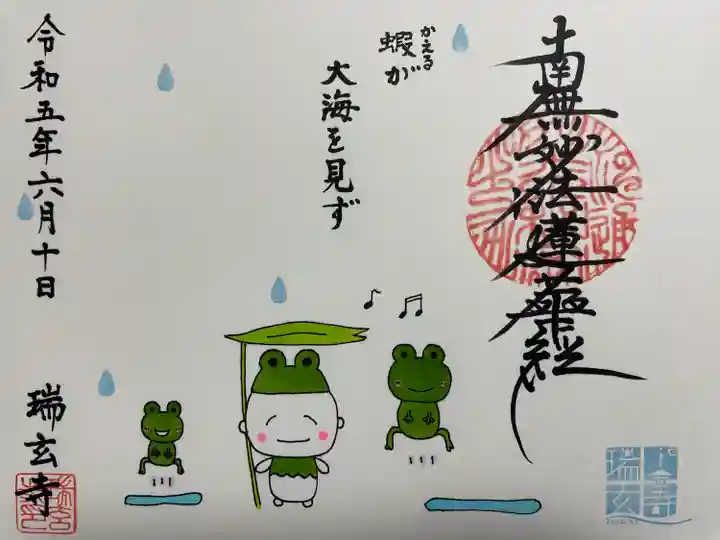 南無妙法蓮華経
蝦が
かえる
大海を見ず
令和五年六月十日
瑞玄寺
瑞玄寺